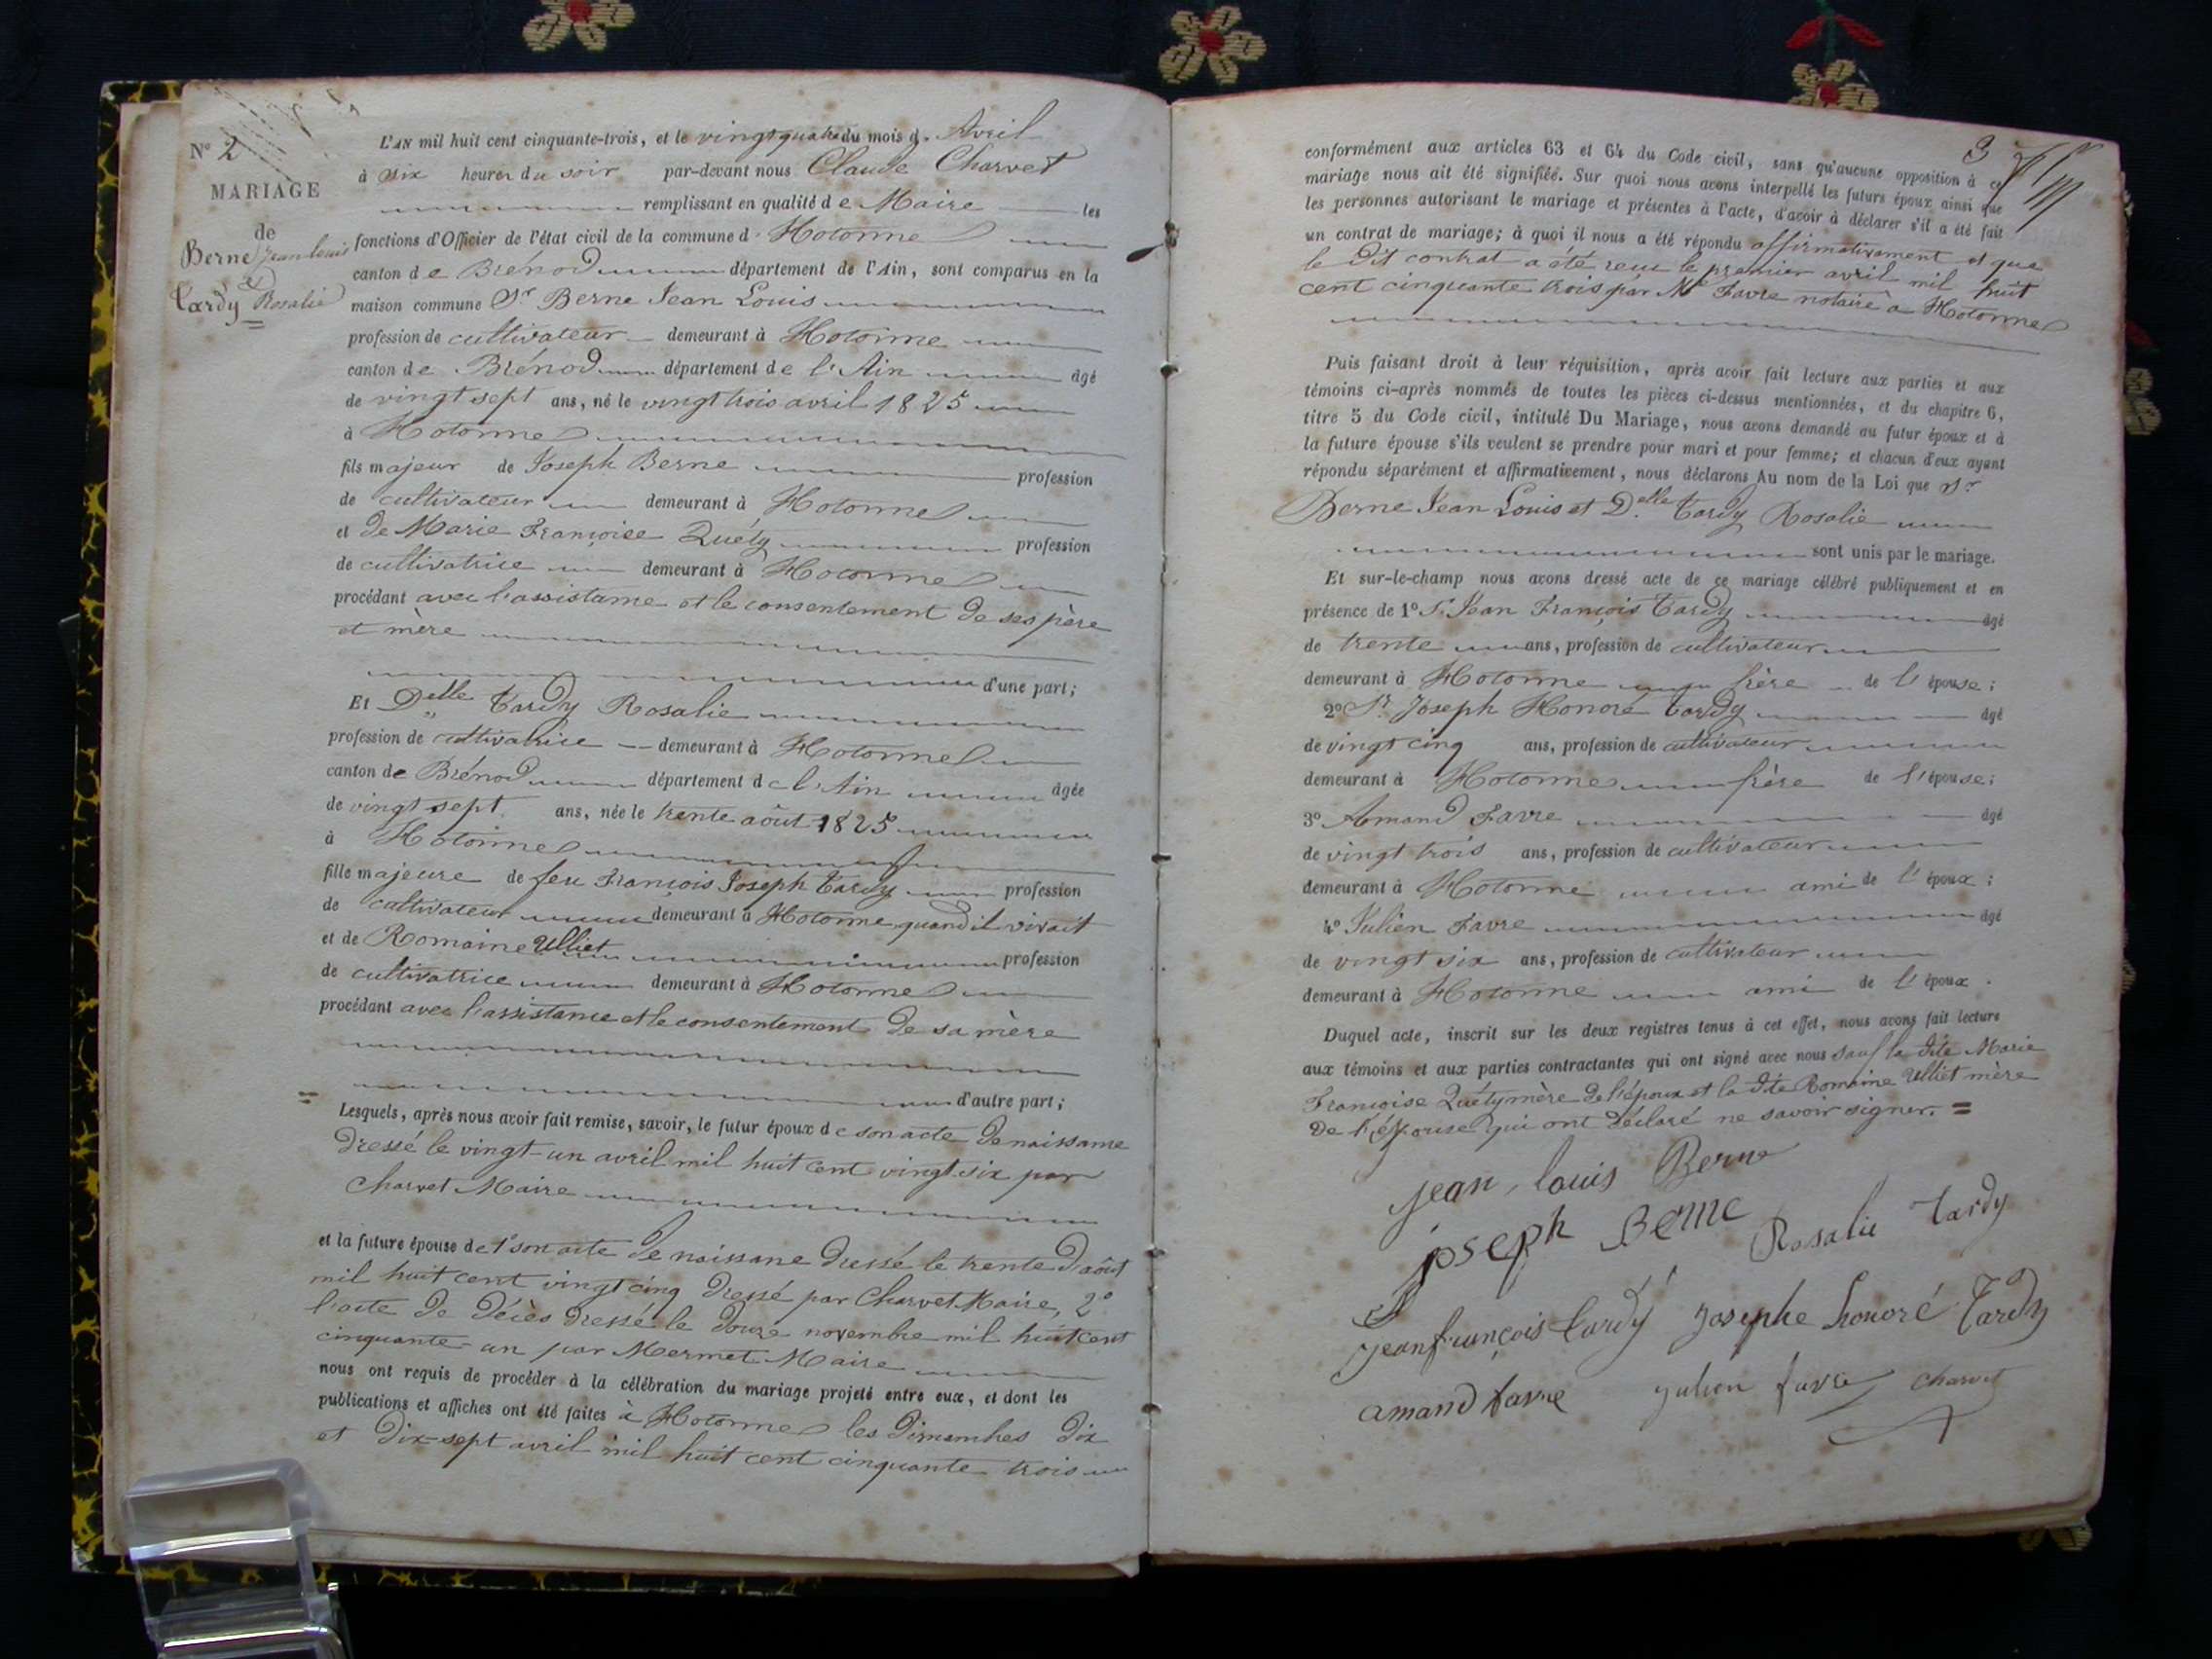 N° 2
MARIAGE
de
Berne Jean Louis
et
Tardy Rosalie
L'AN mil huit cent cinquante-trois, et le vingt quatre du mois d. Avril
à six heures du soir par-devant nous Claude Charvet
remplissant en qualité de Maire les
fonctions d'Officier de l'état civil de la commune d' Hotonne
canton de Brénod département de l'Ain, sont comparus en la
maison commune Sr Berne Jean Louis
profession de cultivateur demeurant à Hotonne
canton de Brénod département de l'Ain âgé
de vingt sept ans, né le vingt trois avril 1825
à Hotonne
fils majeur de Joseph Berne profession
de cultivateur demeurant à Hotonne
et de Marie Françoise Quéty profession
de cultivatrice demeurant à Hotonne
procédant avec l'assistance et le consentement de ses père
et mère
d'une part;
Et Delle Tardy Rosalie
profession de cultivatrice demeurant à Hotonne
canton de Brénod département de l'Ain âgée
de vingt sept ans, née le trente août 1825
à Hotonne
fille majeure de feu François Joseph Tardy profession
de cultivateur demeurant à Hotonne quand il vivait
et de Romaine Ulliet profession
de cultivatrice demeurant à Hotonne
procédant avec l'assistance et le consentement de sa mère
d'autre part;
Lesquels, après nous avoir fait remise, savoir, le futur époux de son acte de naissance
dressé le vingt-un avril mil huit cent vingt six par
Charvet Maire
et la future épouse de 1° son acte de naissane dressé le trente d'août
mil huit cent vingt cinq dressé par Charvet Maire, 2°
l'acte de décès dressé le douze novembre mil huit cent
cinquante-un par Mermet Maire
nous ont requis de procéder à la célébration du mariage projeté entre eux, et dont les
publications et affiches ont été faites à Hotonne les dimanches dix
et dix-sept avril mil huit cent cinquante trois
3
conformément aux articles 63 et 64 du Code civil, sans qu'aucune opposition à ce
mariage nous ait été signifiée. Sur quoi nous avons interpellé les futurs époux ainsi que
les personnes autorisant le mariage et présentes à l'acte, d'avoir à déclarer s'il a été fait
un contrat de mariage; à quoi il nous a été répondu affirmativement et que
le dit contrat a été reçu le premier avril mil huit
cent cinquante trois par Me Favre notaire à Hotonne
Puis faisant droit à leur réquisition, après avoir fait lecture aux parties et aux
témoins ci-après nommés de toutes les pièces ci-dessus mentionnées, et du chapitre 6,
titre 5 du Code civil, intitulé Du Mariage, nous avons demandé au futur époux et à
la future épouse s'ils veulent se prendre pour mari et pour femme; et chacun d'eux ayant
répondu séparément et affirmativement, nous déclarons Au nom de la Loi que Sr
Berne Jean Louis et Delle Tardy Rosalie
sont unis par le mariage.
Et sur-le-champ nous avons dressé acte de ce mariage célébré publiquement et en
présence de 1° Sr Jean François Tardy âgé
de trente ans, profession de cultivateur
demeurant à Hotonne frère de l'épouse;
2° Sr Joseph Honoré Tardy âgé
de vingt cinq ans, profession de cultivateur
demeurant à Hotonne frère de l'épouse;
3° Amand Favre âgé
de vingt trois ans, profession de cultivateur
demeurant à Hotonne ami de l'époux;
4° Julien Favre âgé
de vingt six ans, profession de cultivateur
demeurant à Hotonne ami de l'époux.
Duquel acte, inscrit sur les deux registres tenus à cet effet, nous avons fait lecture
aux témoins et aux parties contractantes qui ont signé avec nous sauf la dite Marie
Françoise Quéty mère de l'époux et la dite Romaine Ulliet mère
de l'épouse qui ont déclaré ne savoir signer. =
jean louis Berne
joseph Berne
Rosalie Tardy
jean françois tardy josephe honoré Tardy
amand favre julien favre charvet